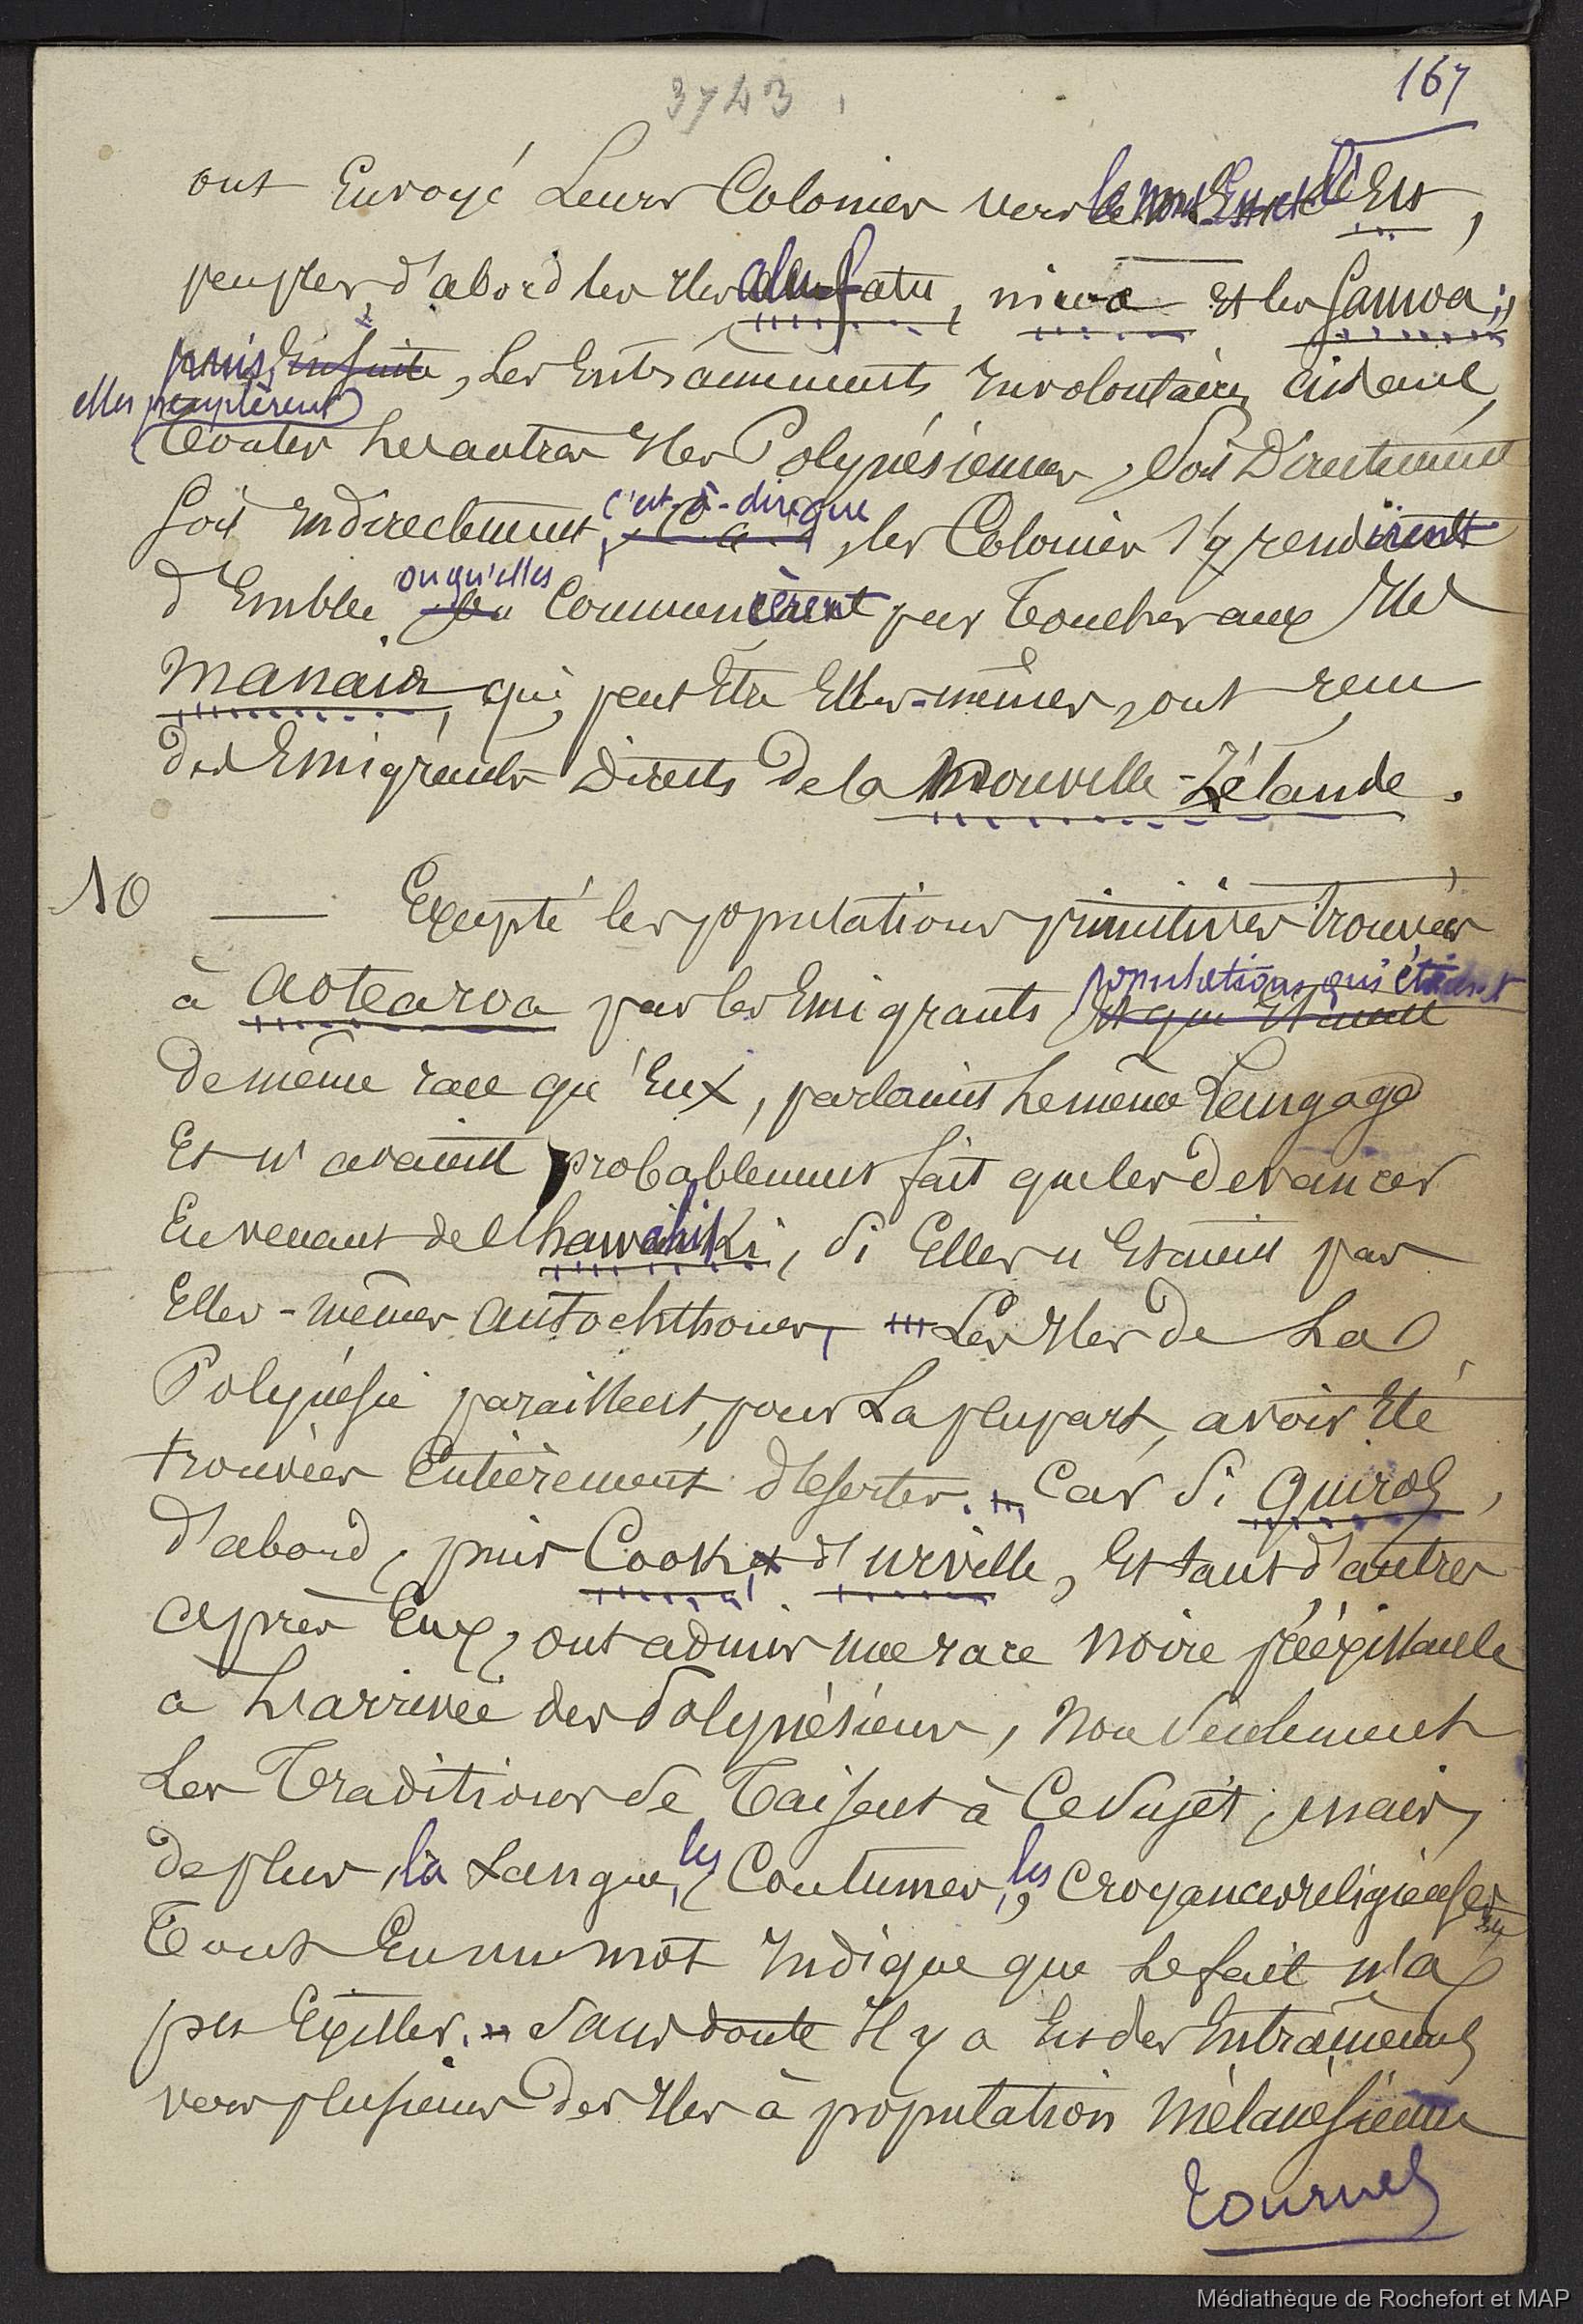 3743
167
ont Envoyé Leurs Colonies vers le nord Est et l'Est,
peupler d'abord les Iles alu fatu, niua et les Samoa;
puis, Ensuite, Les Entrainements Involontaires aidant,
elles peuplèrent
toutes Les autres Iles Polynésiennes, Soit Directement
Soit Indirectement, c'est-à-dire que, les Colonies s'y rendirent
d'Emblée ou qu'elles Commencèrent par toucher aux Iles
Manaia, qui, peut Etre Elles-mêmes, ont reçu
des Emigrants Directs de la Nouvelle-Zélande.
10 — Excepté les populations primitives trouvées
à Aotearoa par les Emigrants populations qui étaient
Et qui Etaient
de même race qu'Eux, parlaient Le même Langage
Et n'avaient probablement fait que les devancer
En venant de l'hawahiki, Si Elles n'Etaient pas
Elles-mêmes autochthones, Les Iles de La
Polynésie paraissent, pour La plupart, avoir Eté
trouvées Entièrement désertes. Car Si Quiros,
d'abord, puis Cook, et d'Urville, Et tant d'autres
après Eux, ont admis une race noire préexistante
a L'arrivée des Polynésiens, Non Seulement
Les Traditions se Taisent à Ce Sujet, mais,
de plus, la Langue, les Coutumes, les Croyances religieuses
Tout En un mot Indique que Le fait n'a
pas Exister. Sans doute Il y a Eu des Entrainements
vers plusieurs des Iles à population Mélanésienne
tournez
Médiathèque de Rochefort et MAP